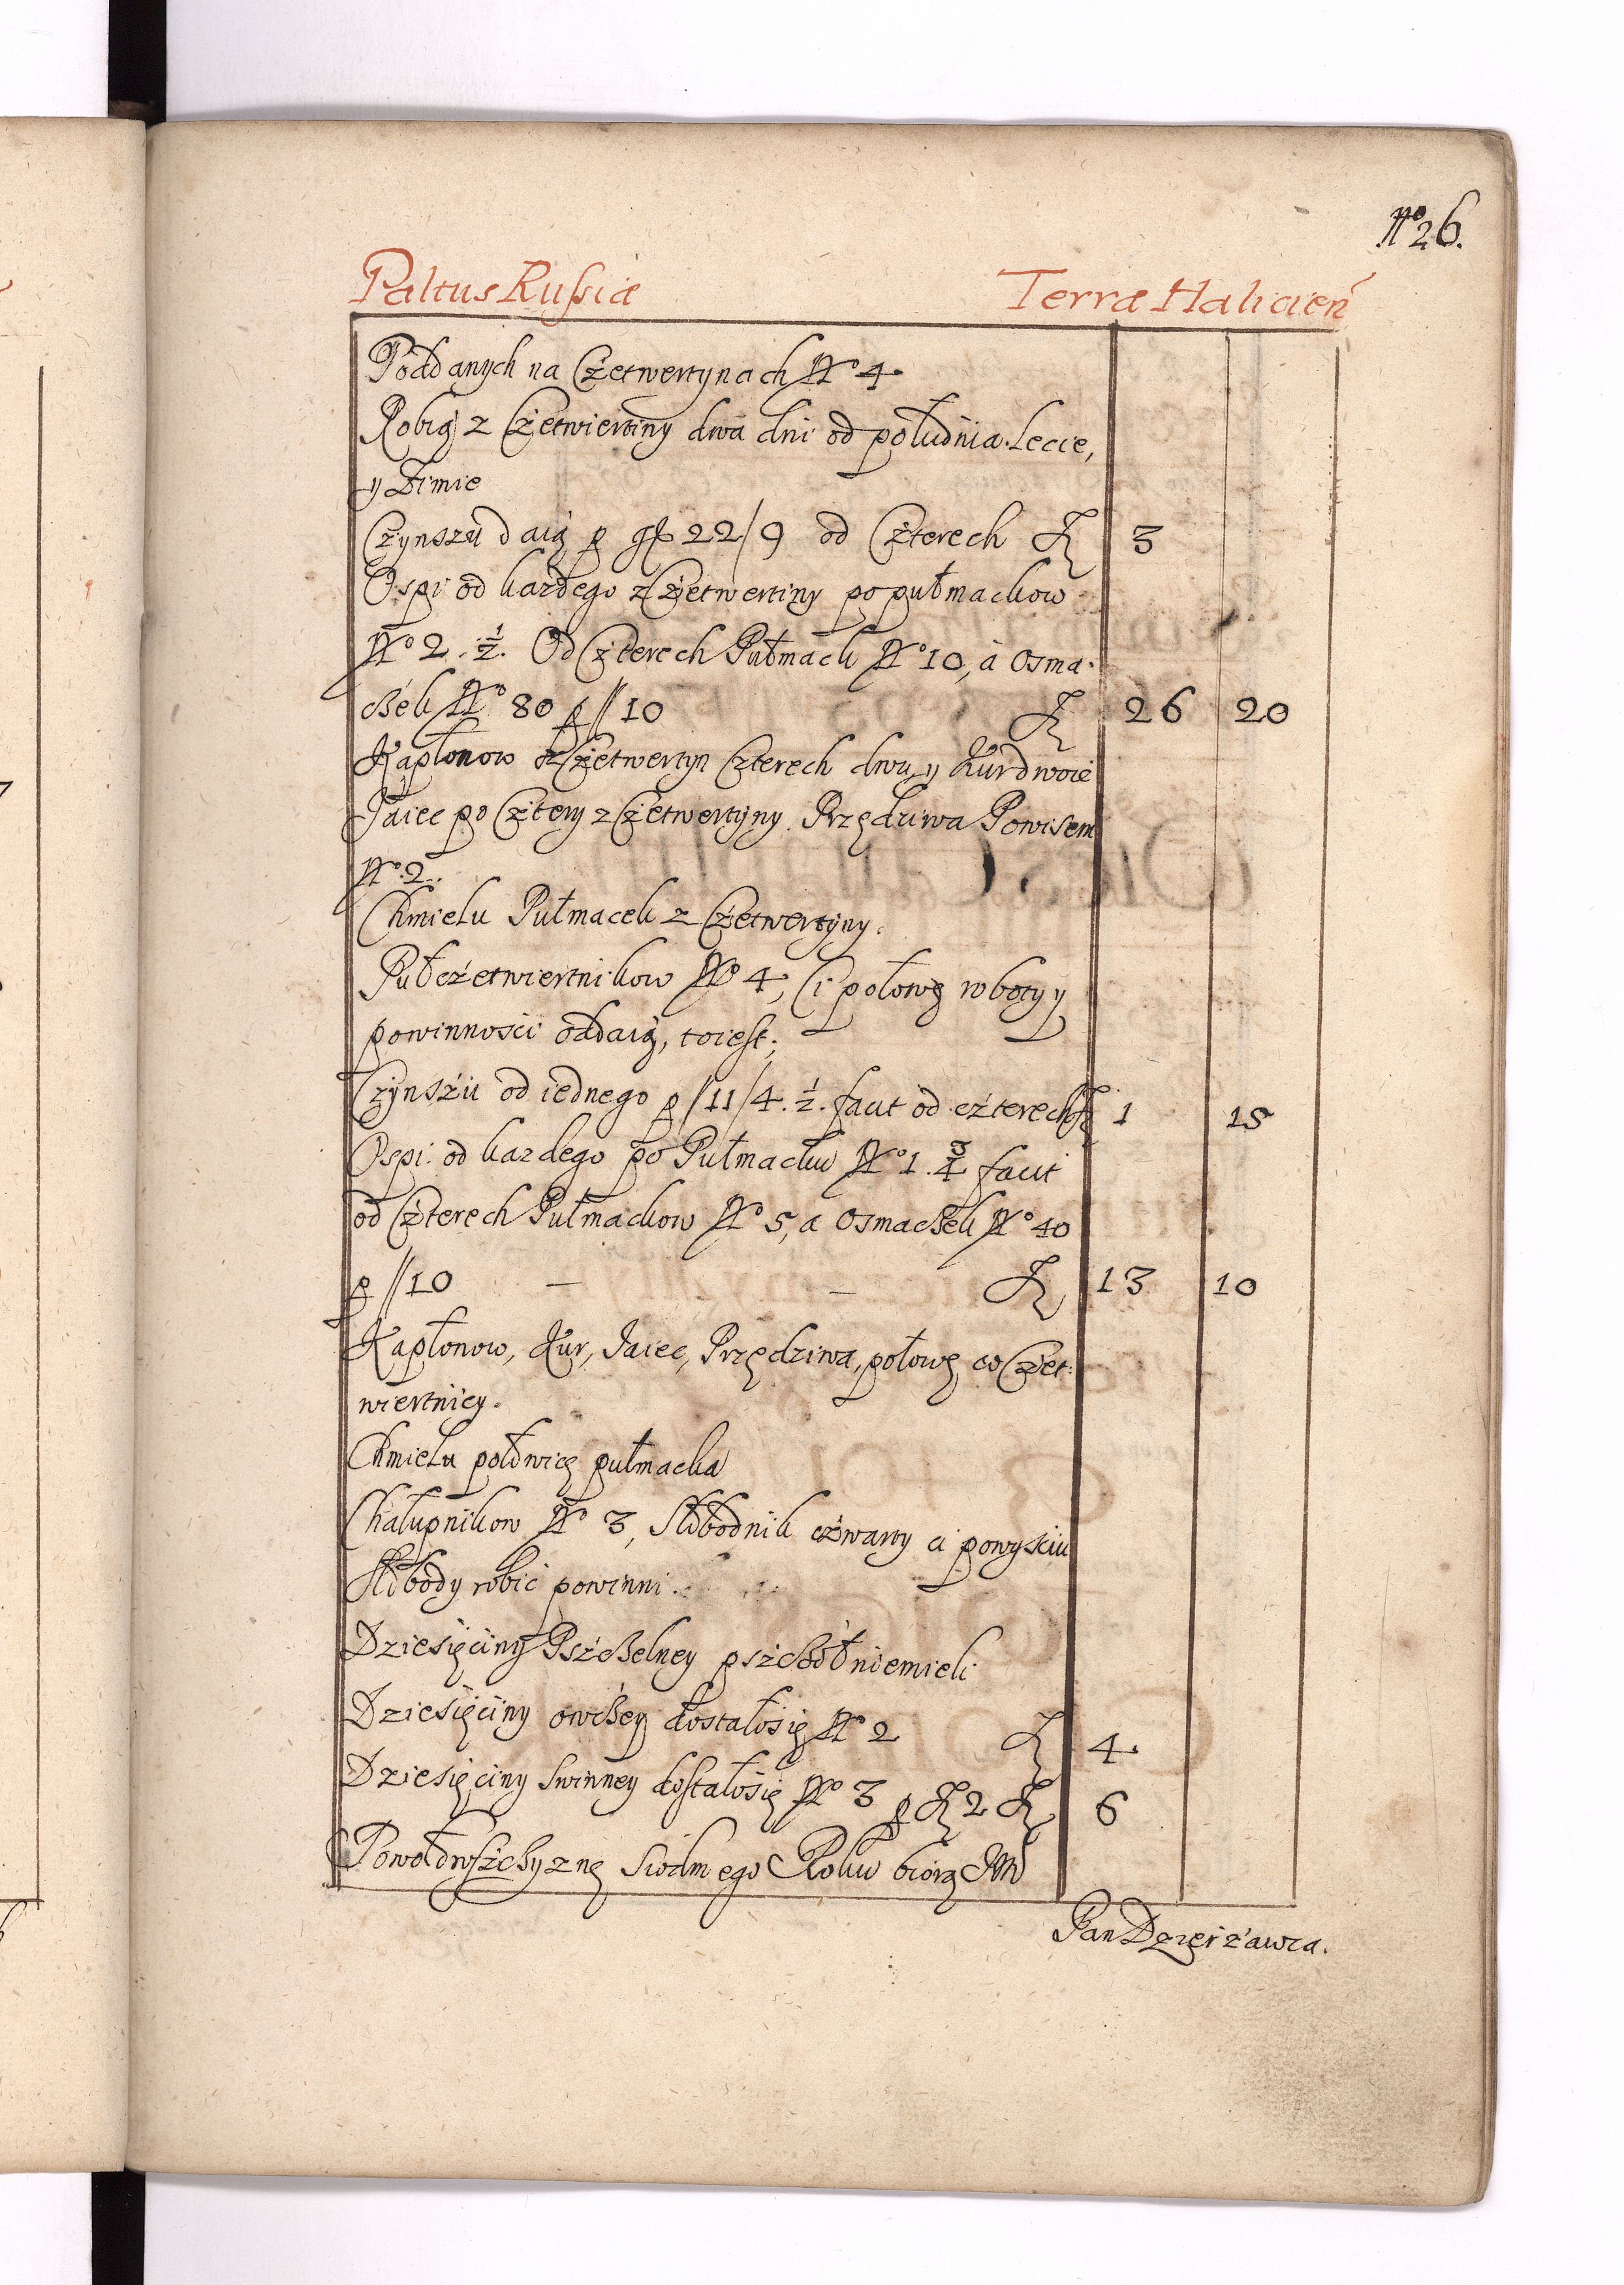 No 26.
Paltus Russiæ Terræ Halicień
Poddanych na Czetwertynach No 4.
Robią z Czetwiertiny dwa dni od południa Lecie,
y Zimie
Czynszu daią p gl 22/9 od Czterech fl 3
Ospi od kazdego z Czetwertiny po pułmackow
No 2. 1/2. Od Czterech Pułmack No 10, a Osma-
czek No 80 p // 10 fl 26 20
Kapłonow z Czetwertyn Czterech dwu, y Kur dwoie
Jaiec po Cztery z Czetwertyny. Przędziwa Powisem
No 2.
Chmielu Pułmacek z Czetwertyny.
Pułczetwiertnikow No 4, Ci połowę roboty y
powinnosci oddaią, toiest;
Czynszu od iednego p /11/4. 1/2. facit od czterech fl 1 15
Ospi od kazdego po Pułmacku No 1. 3/4 facit
od Czterech Pułmackow No 5, a Osmaczek No 40
p // 10 — — fl 13 10
Kapłonow, Kur, Jaiec, Przędziwa, połowę, co Czet-
wiertnicy.
Chmielu połowicę pułmacka
Chałupnikow No 3, Słobodnik czwarty ci powysciu
Słobody robić powinni.
Dziesięciny Pszczelney pszczół niemieli
Dziesięciny owczey dostałosię No 2 fl 4.
Dziesięciny Swinney dostałosię No 3 p fl 2 fl 6
Powołowszczyznę Siodmego Roku biorą JM
Pan Dzierżawca.